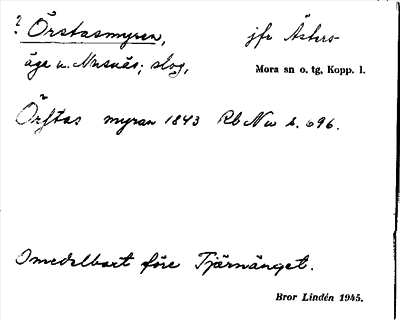 ? Örstasmyren, jfr Åsters-
äga u. Nusnäs; slog, Mora sn o. tg, Kopp. l.
Örstas myran 1843 Rb Nu s. 696.
Omedelbart före Tjärnänget.
Bror Lindén 1945.